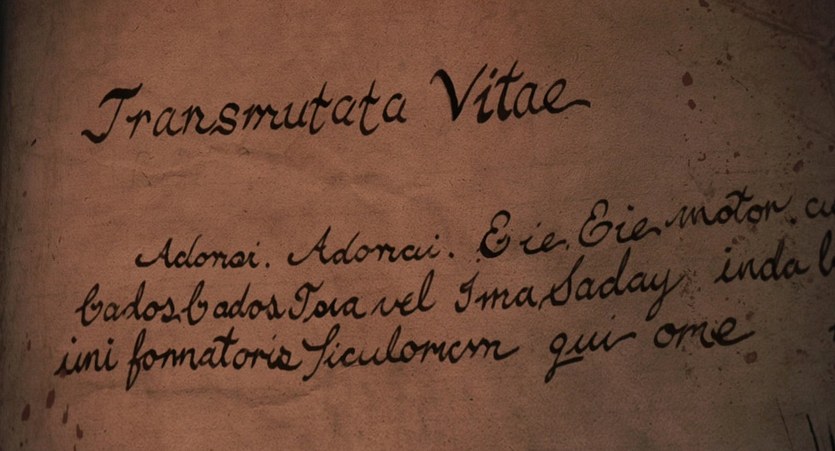 Transmutata Vitae
Adonai. Adonai. Eie. Eie motor
Cados Cados Toia vel Ima Saday inda
imi fonnatoris Siculoricm qui ome